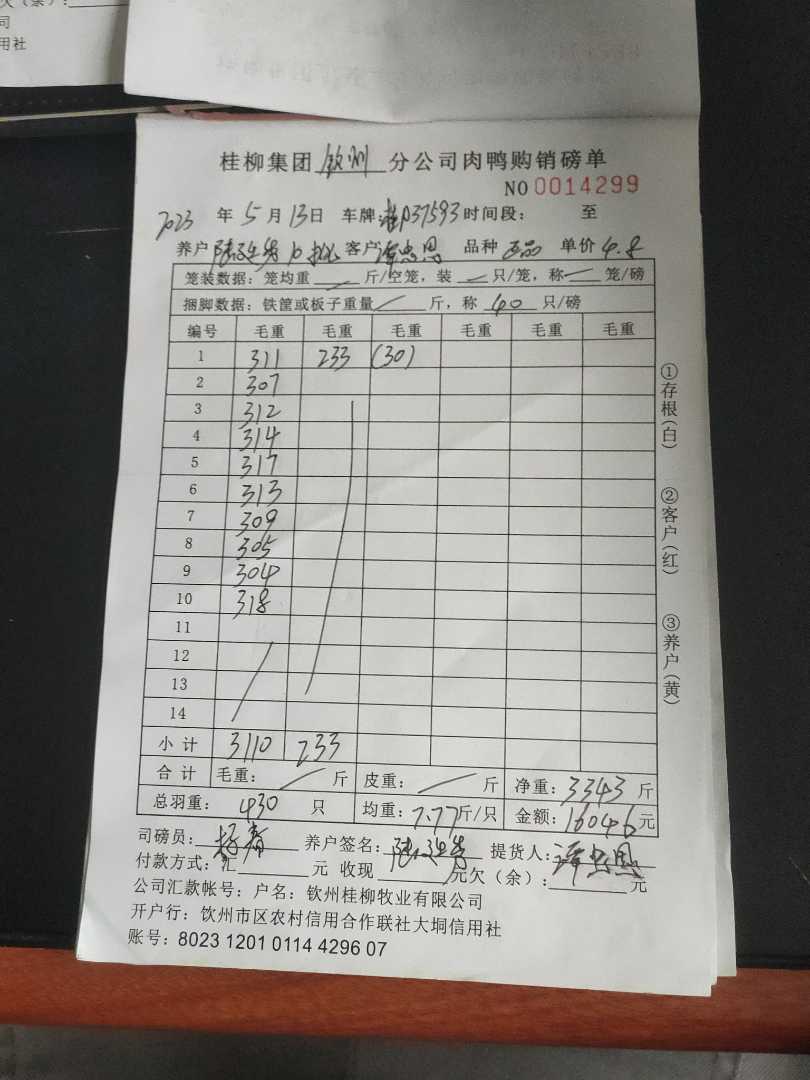 司
用社
桂柳集团 钦州 分公司肉鸭购销磅单
NO 0014299
2023 年 5 月 13 日 车牌: 37593 时间段: 至
养户 客户 谭忠恩 品种 正品 单价 4.8
笼装数据: 笼均重 斤/空笼, 装 只/笼, 称 笼/磅
捆脚数据: 铁筐或板子重量 斤, 称 40 只/磅
编号 毛重 毛重 毛重 毛重 毛重 毛重
1 311 233 (30)
2 307
3 312
4 314
5 317
6 313
7 309
8 305
9 304
10 318
11
12
13
14
小计 3110 233
合计 毛重: 斤 皮重: 斤 净重: 3343 斤
总羽重: 430 只 均重: 7.77 斤/只 金额: 16046 元
司磅员: 养户签名: 提货人: 谭忠恩
付款方式: 汇 元 收现 元欠(余): 元
公司汇款帐号: 户名: 钦州桂柳牧业有限公司
开户行: 钦州市区农村信用合作联社大垌信用社
账号: 8023 1201 0114 4296 07
①存根(白)
②客户(红)
③养户(黄)